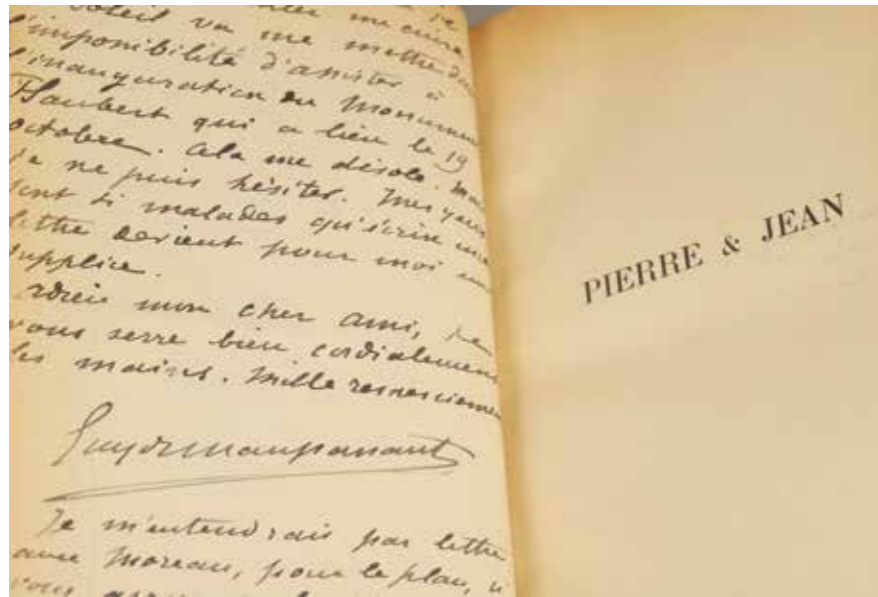 soleil va me mettre dans
l'impossibilité d'assister à
l'inauguration du Monument
Flaubert qui a lieu le 19
octobre. Cela me désole. Mais
je ne puis hésiter. Mes yeux
sont si malades qu'écrire une
lettre devient pour moi un
supplice.
Adieu mon cher ami, je
vous serre bien cordialement
les mains. Mille remerciemen
Guy de Maupassant
Je m'entendrais par lettre
avec Moreau, pour le plan, si
PIERRE & JEAN